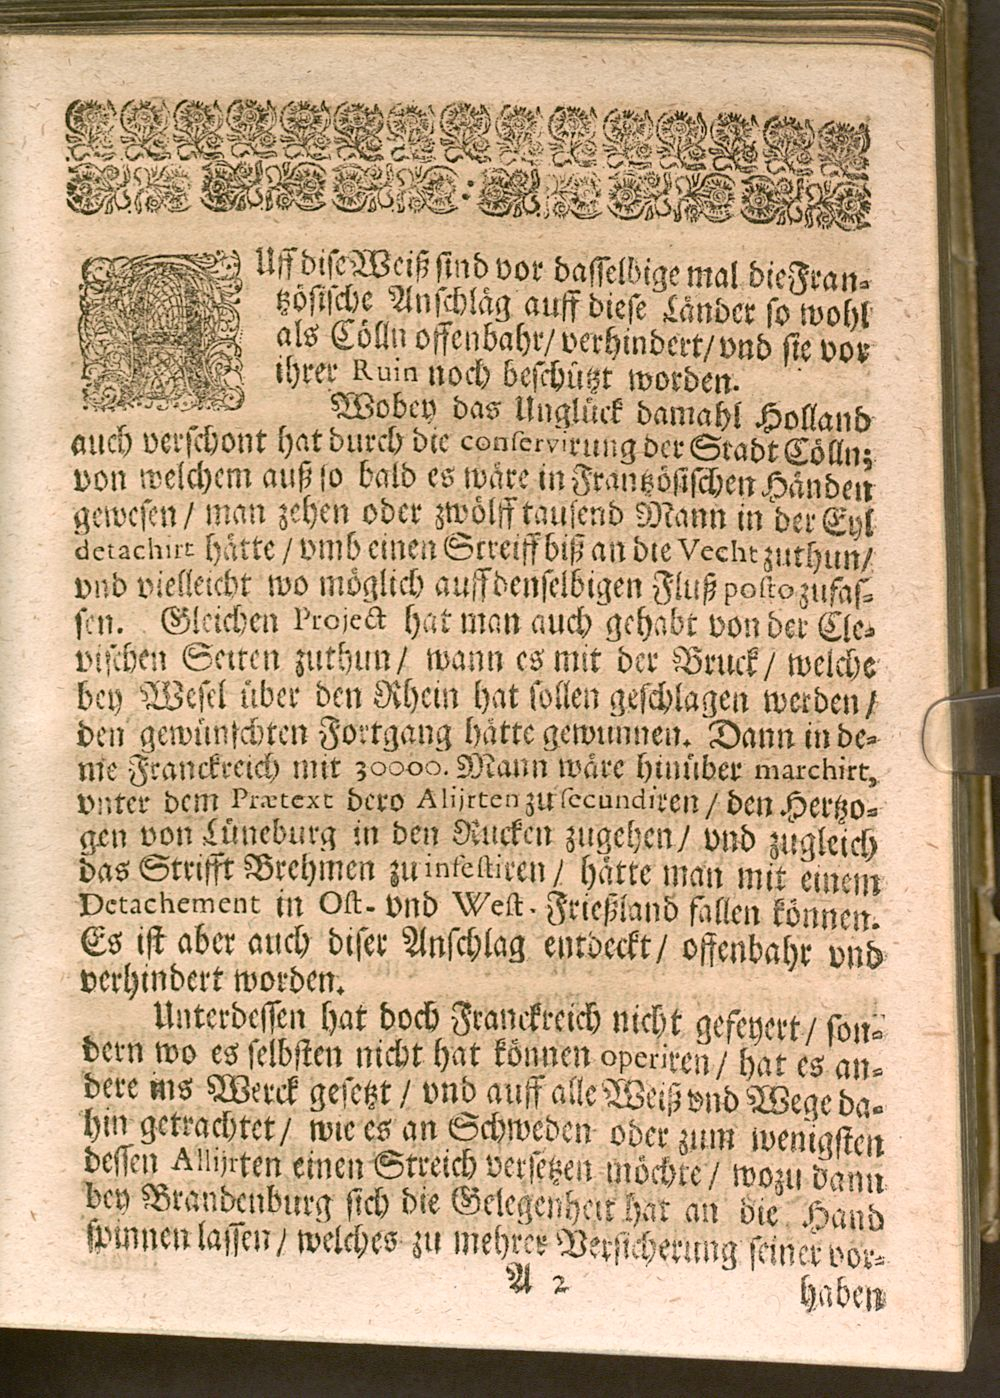 AUff dise Weiß sind vor dasselbige mal die Fran-
tzösische Anschläg auff diese Länder so wohl
als Cölln offenbahr/ verhindert/ vnd sie vor
ihrer Ruin noch beschützt worden.
Wobey das Unglück damahl Holland
auch verschont hat durch die conservirung der Stadt Cölln;
von welchem auß so bald es wäre in Frantzösischen Händen
gewesen / man zehen oder zwölff tausend Mann in der Eyl
detachirt hätte / vmb einen Streiff biß an die Vecht zuthun/
vnd vielleicht wo möglich auff denselbigen Fluß posto zufas-
sen. Gleichen Project hat man auch gehabt von der Cle-
vischen Seiten zuthun / wann es mit der Bruck / welche
bey Wesel über den Rhein hat sollen geschlagen werden /
den gewünschten Fortgang hätte gewunnen. Dann in de-
me Franckreich mit 30000. Mann wäre hinüber marchirt,
vnter dem Prætext dero Alijrten zu secundiren / den Hertzo-
gen von Lüneburg in den Rucken zugehen / vnd zugleich
das Strifft Brehmen zu infestiren / hätte man mit einem
Detachement in Ost- vnd West- Frießland fallen können.
Es ist aber auch diser Anschlag entdeckt / offenbahr vnd
verhindert worden.
Unterdessen hat doch Franckreich nicht gefeyert / son-
dern wo es selbsten nicht hat können operiren / hat es an-
dere ins Werck gesetzt / vnd auff alle Weiß vnd Wege da-
hin getrachtet / wie es an Schweden oder zum wenigsten
dessen Allijrten einen Streich versetzen möchte / wozu dann
bey Brandenburg sich die Gelegenheit hat an die Hand
spinnen lassen / welches zu mehrer Versicherung seiner vor-
A 2
haben